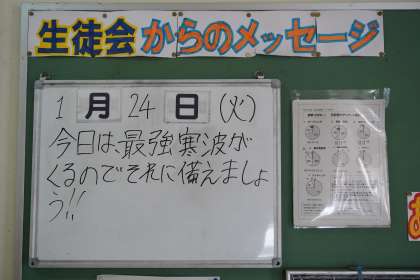 生徒会からのメッセージ
1月24日(火)
今日は、最強寒波が
くるのでそれに備えましょ
う!!